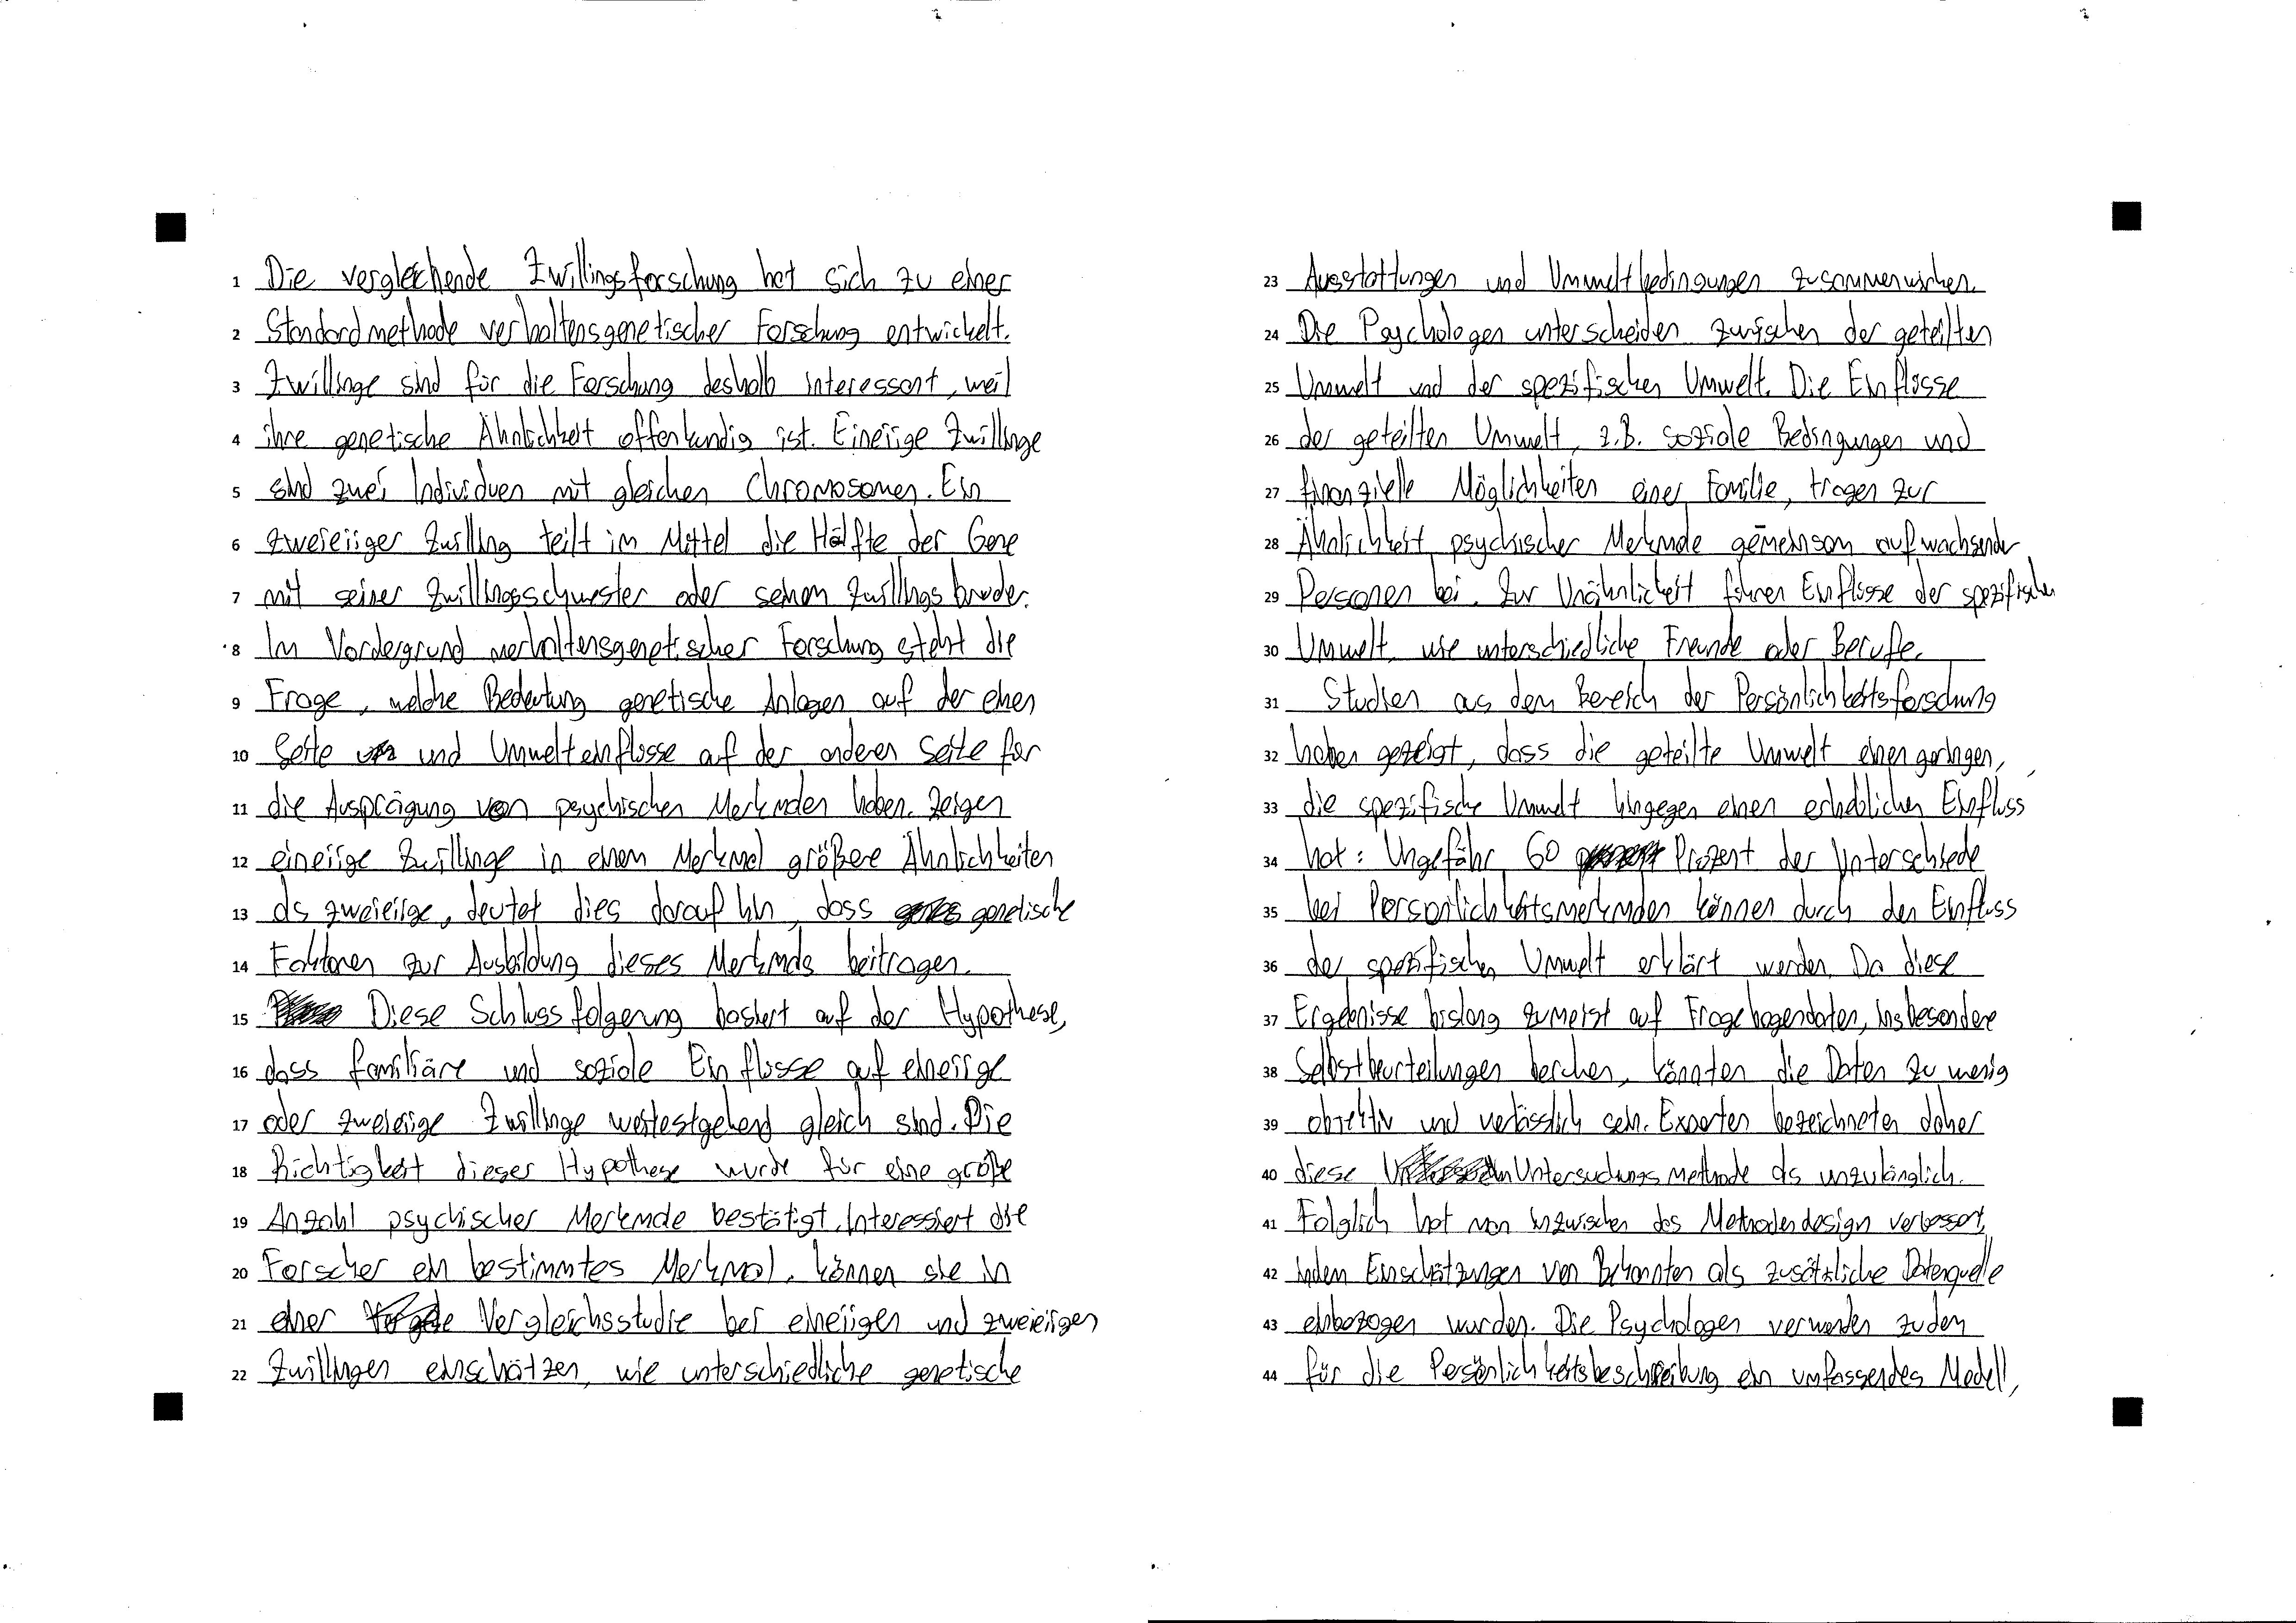 1 Die vergleichende Zwillingsforschung hat sich zu einer
2 Standardmethode verhaltensgenetischer Forschung entwickelt.
3 Zwillinge sind für die Forschung deshalb interessant, weil
4 ihre genetische Ähnlichkeit offenkundig ist. Eineiige Zwillinge
5 sind zwei Individuen mit gleichen Chromosomen. Ein
6 zweieiiger Zwilling teilt im Mittel die Hälfte der Gene
7 mit seiner Zwillingsschwester oder seinem Zwillingsbruder.
8 Im Vordergrund verhaltensgenetischer Forschung steht die
9 Frage, welche Bedeutung genetische Anlagen auf der einen
10 Seite und Umwelteinflüsse auf der anderen Seite für
11 die Ausprägung von psychischen Merkmalen haben. Zeigen
12 eineiige Zwillinge in einem Merkmal größere Ähnlichkeiten
13 als zweieiige, deutet dies darauf hin, dass genetische
14 Faktoren zur Ausbildung dieses Merkmals beitragen.
15 Diese Schlussfolgerung basiert auf der Hypothese,
16 dass familiäre und soziale Einflüsse auf eineiige
17 oder zweieiige Zwillinge weitestgehend gleich sind. Die
18 Richtigkeit dieser Hypothese wurde für eine große
19 Anzahl psychischer Merkmale bestätigt. Interessiert die
20 Forscher ein bestimmtes Merkmal, können sie in
21 einer Vergleichsstudie bei eineiigen und zweieiigen
22 Zwillingen einschätzen, wie unterschiedliche genetische
23 Ausstattungen und Umweltbedingungen zusammenwirken.
24 Die Psychologen unterscheiden zwischen der geteilten
25 Umwelt und der spezifischen Umwelt. Die Einflüsse
26 der geteilten Umwelt, z.B. soziale Bedingungen und
27 finanzielle Möglichkeiten einer Familie, tragen zur
28 Ähnlichkeit psychischer Merkmale gemeinsam aufwachsender
29 Personen bei. Zur Unähnlichkeit führen Einflüsse der spezifischen
30 Umwelt, wie unterschiedliche Freunde oder Berufe.
31 Studien aus dem Bereich der Persönlichkeitsforschung
32 haben gezeigt, dass die geteilte Umwelt einen geringen,
33 die spezifische Umwelt hingegen einen erheblichen Einfluss
34 hat: Ungefähr 60 Prozent der Unterschiede
35 bei Persönlichkeitsmerkmalen können durch den Einfluss
36 der spezifischen Umwelt erklärt werden. Da diese
37 Ergebnisse bislang zumeist auf Fragebogendaten, insbesondere
38 Selbstbeurteilungen beruhen, könnten die Daten zu wenig
39 objektiv und verlässlich sein. Experten bezeichneten daher
40 diese Untersuchungsmethode als unzulänglich.
41 Folglich hat man inzwischen das Methodendesign verbessert,
42 indem Einschätzungen von Bekannten als zusätzliche Datenquelle
43 einbezogen wurden. Die Psychologen verwenden zudem
44 für die Persönlichkeitsbeschreibung ein umfassendes Modell,